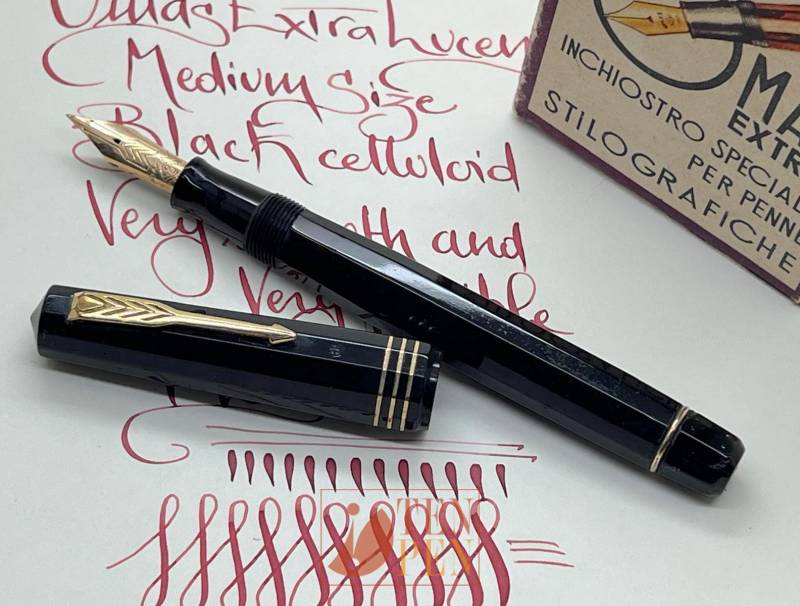 Omas Extra Lucen
Medium Size
Black celluloid
Very and
Very
INCHIOSTRO SPECIAL
MA
EXTR
PER PENNE
STILOGRAFICHE
TEN
PEN